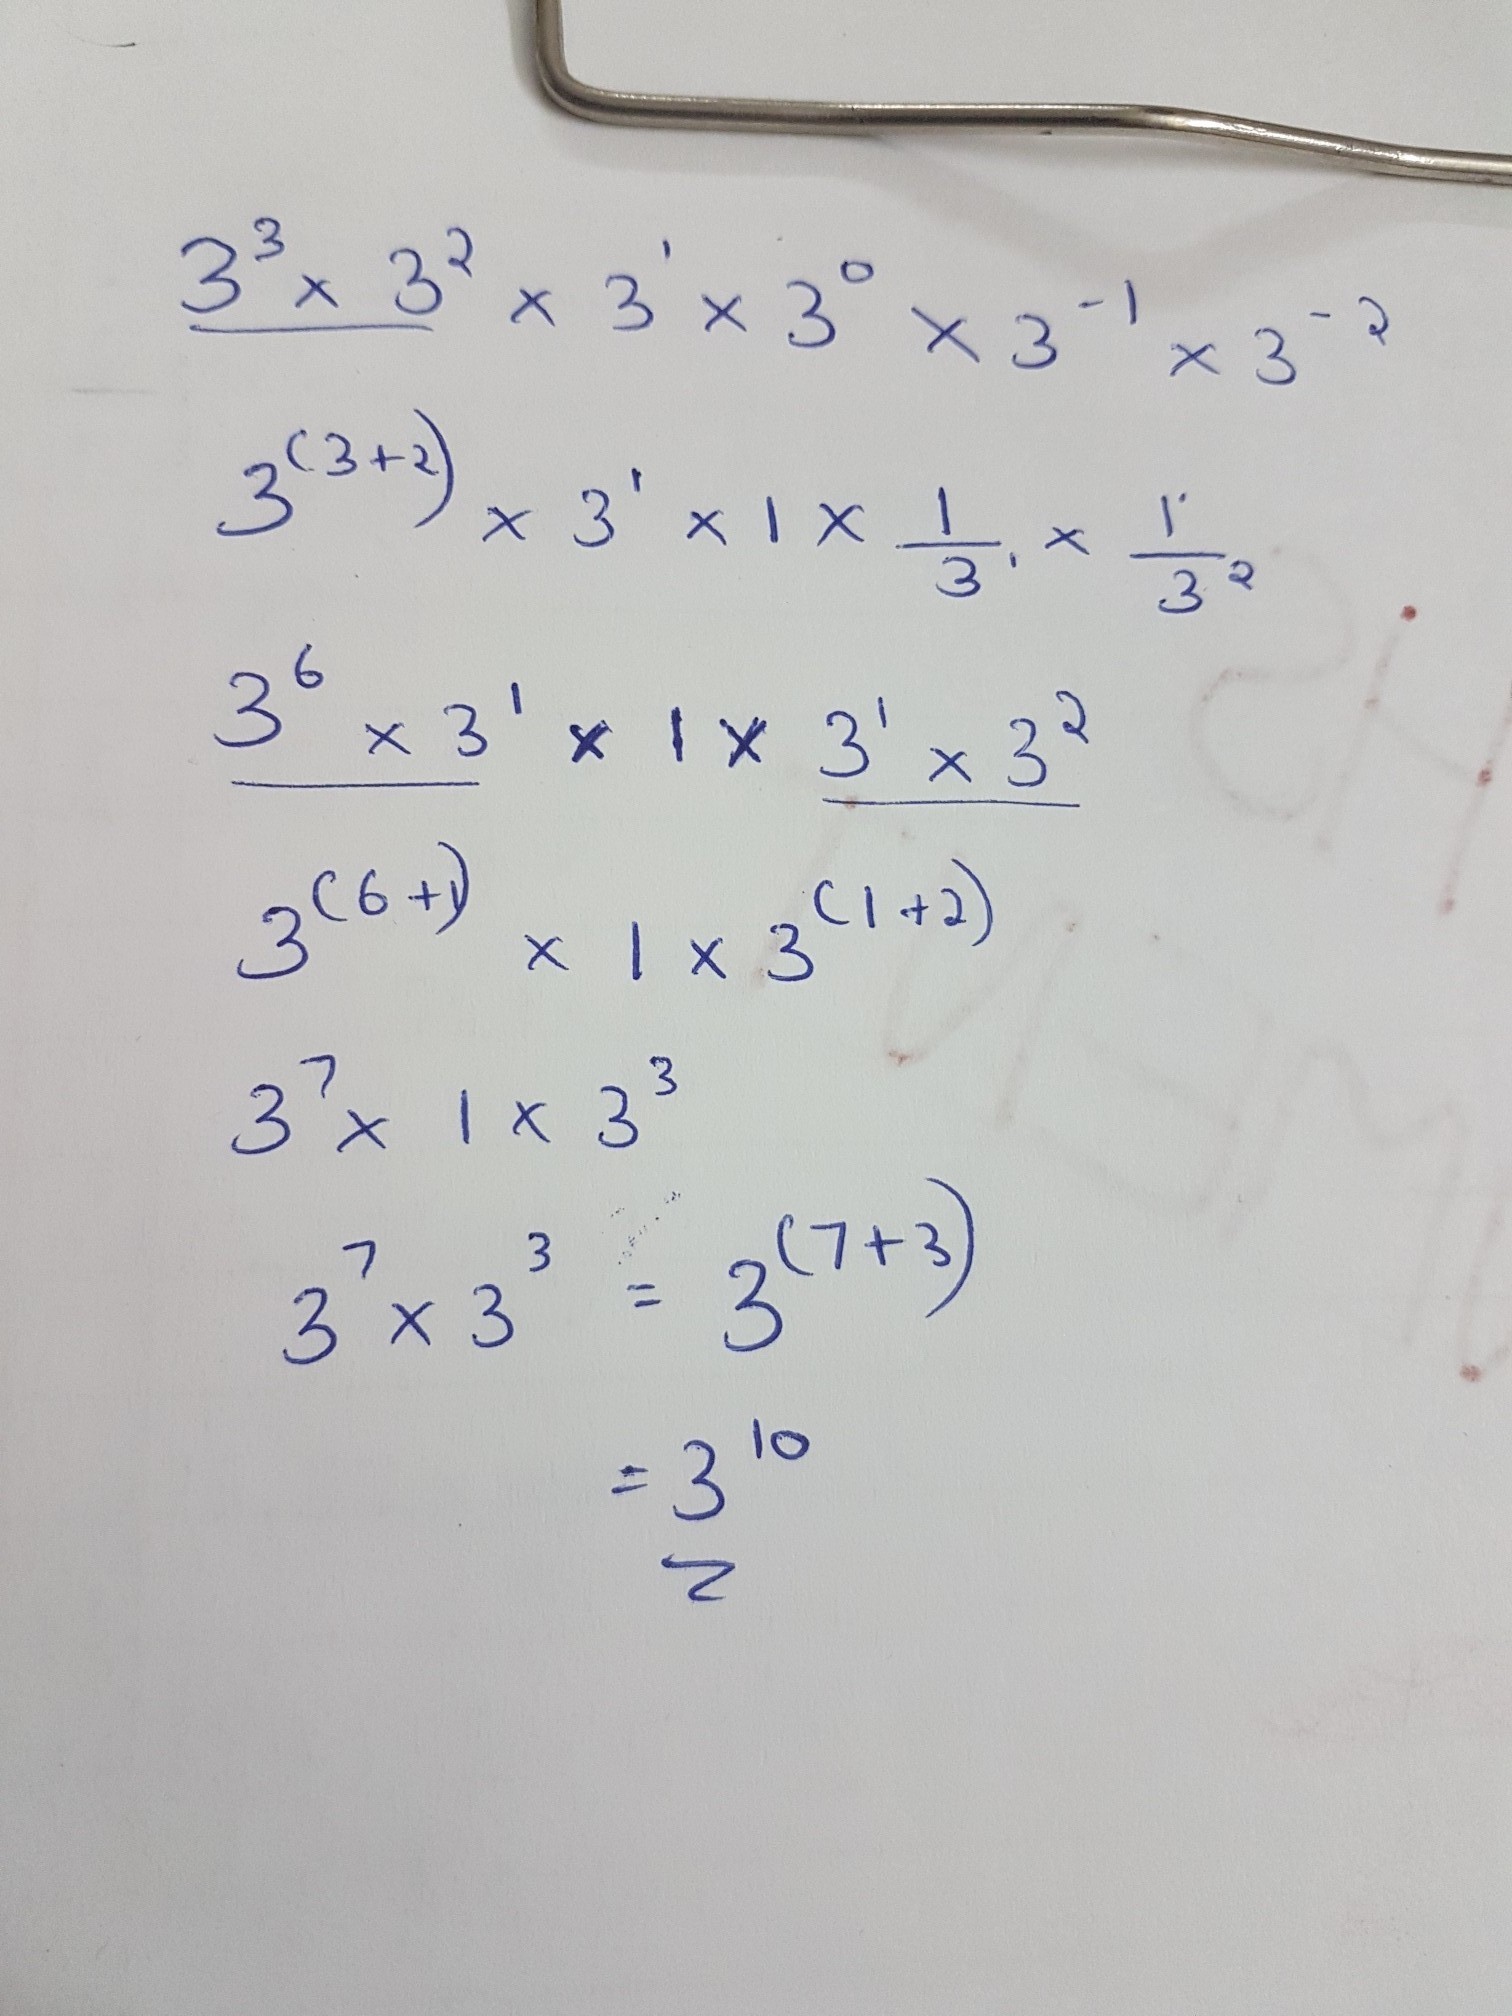 3³ × 3² × 3¹ × 3⁰ × 3⁻¹ × 3⁻²
3⁽³⁺²⁾ × 3¹ × 1 × 1/3¹ × 1/3²
3⁶ × 3¹ × 1 × 3¹ × 3²
3⁽⁶⁺¹⁾ × 1 × 3⁽¹⁺²⁾
3⁷ × 1 × 3³
3⁷ × 3³ = 3⁽⁷⁺³⁾
= 3¹⁰